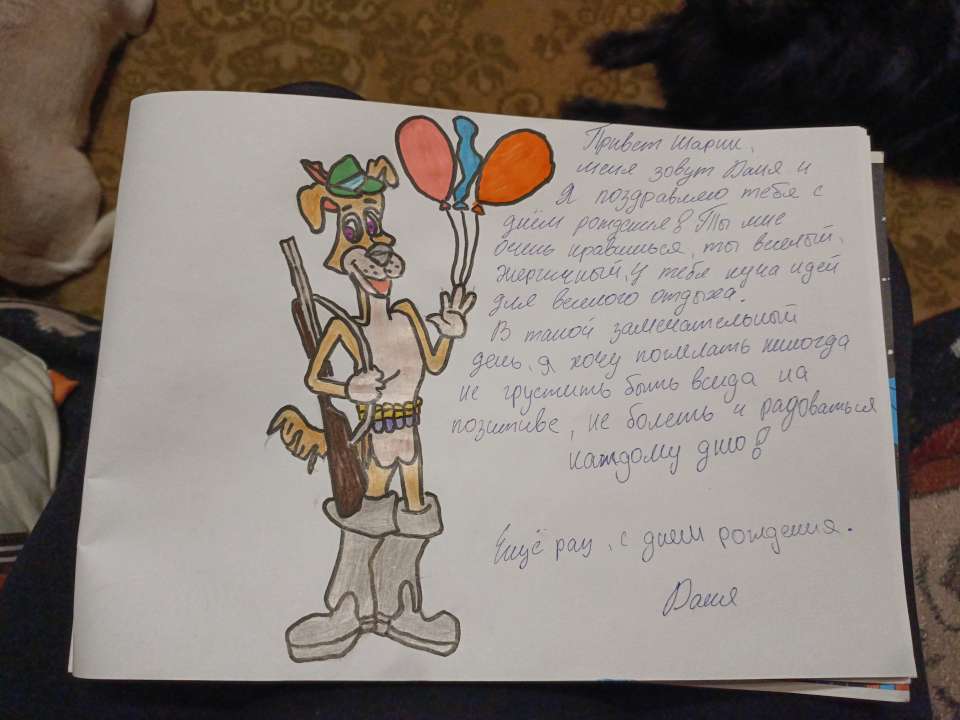 Привет Шарик,
меня зовут Даня и
Я поздравляю тебя с
днём рождения! Ты мне
очень нравишься, ты весёлый,
энергичный, у тебя куча идей
для веселого отдыха.
В такой замечательный
день, я хочу пожелать никогда
не грустить быть всегда на
позитиве, не болеть и радоваться
каждому дню!
Ещё раз, с днем рождения.
Даня